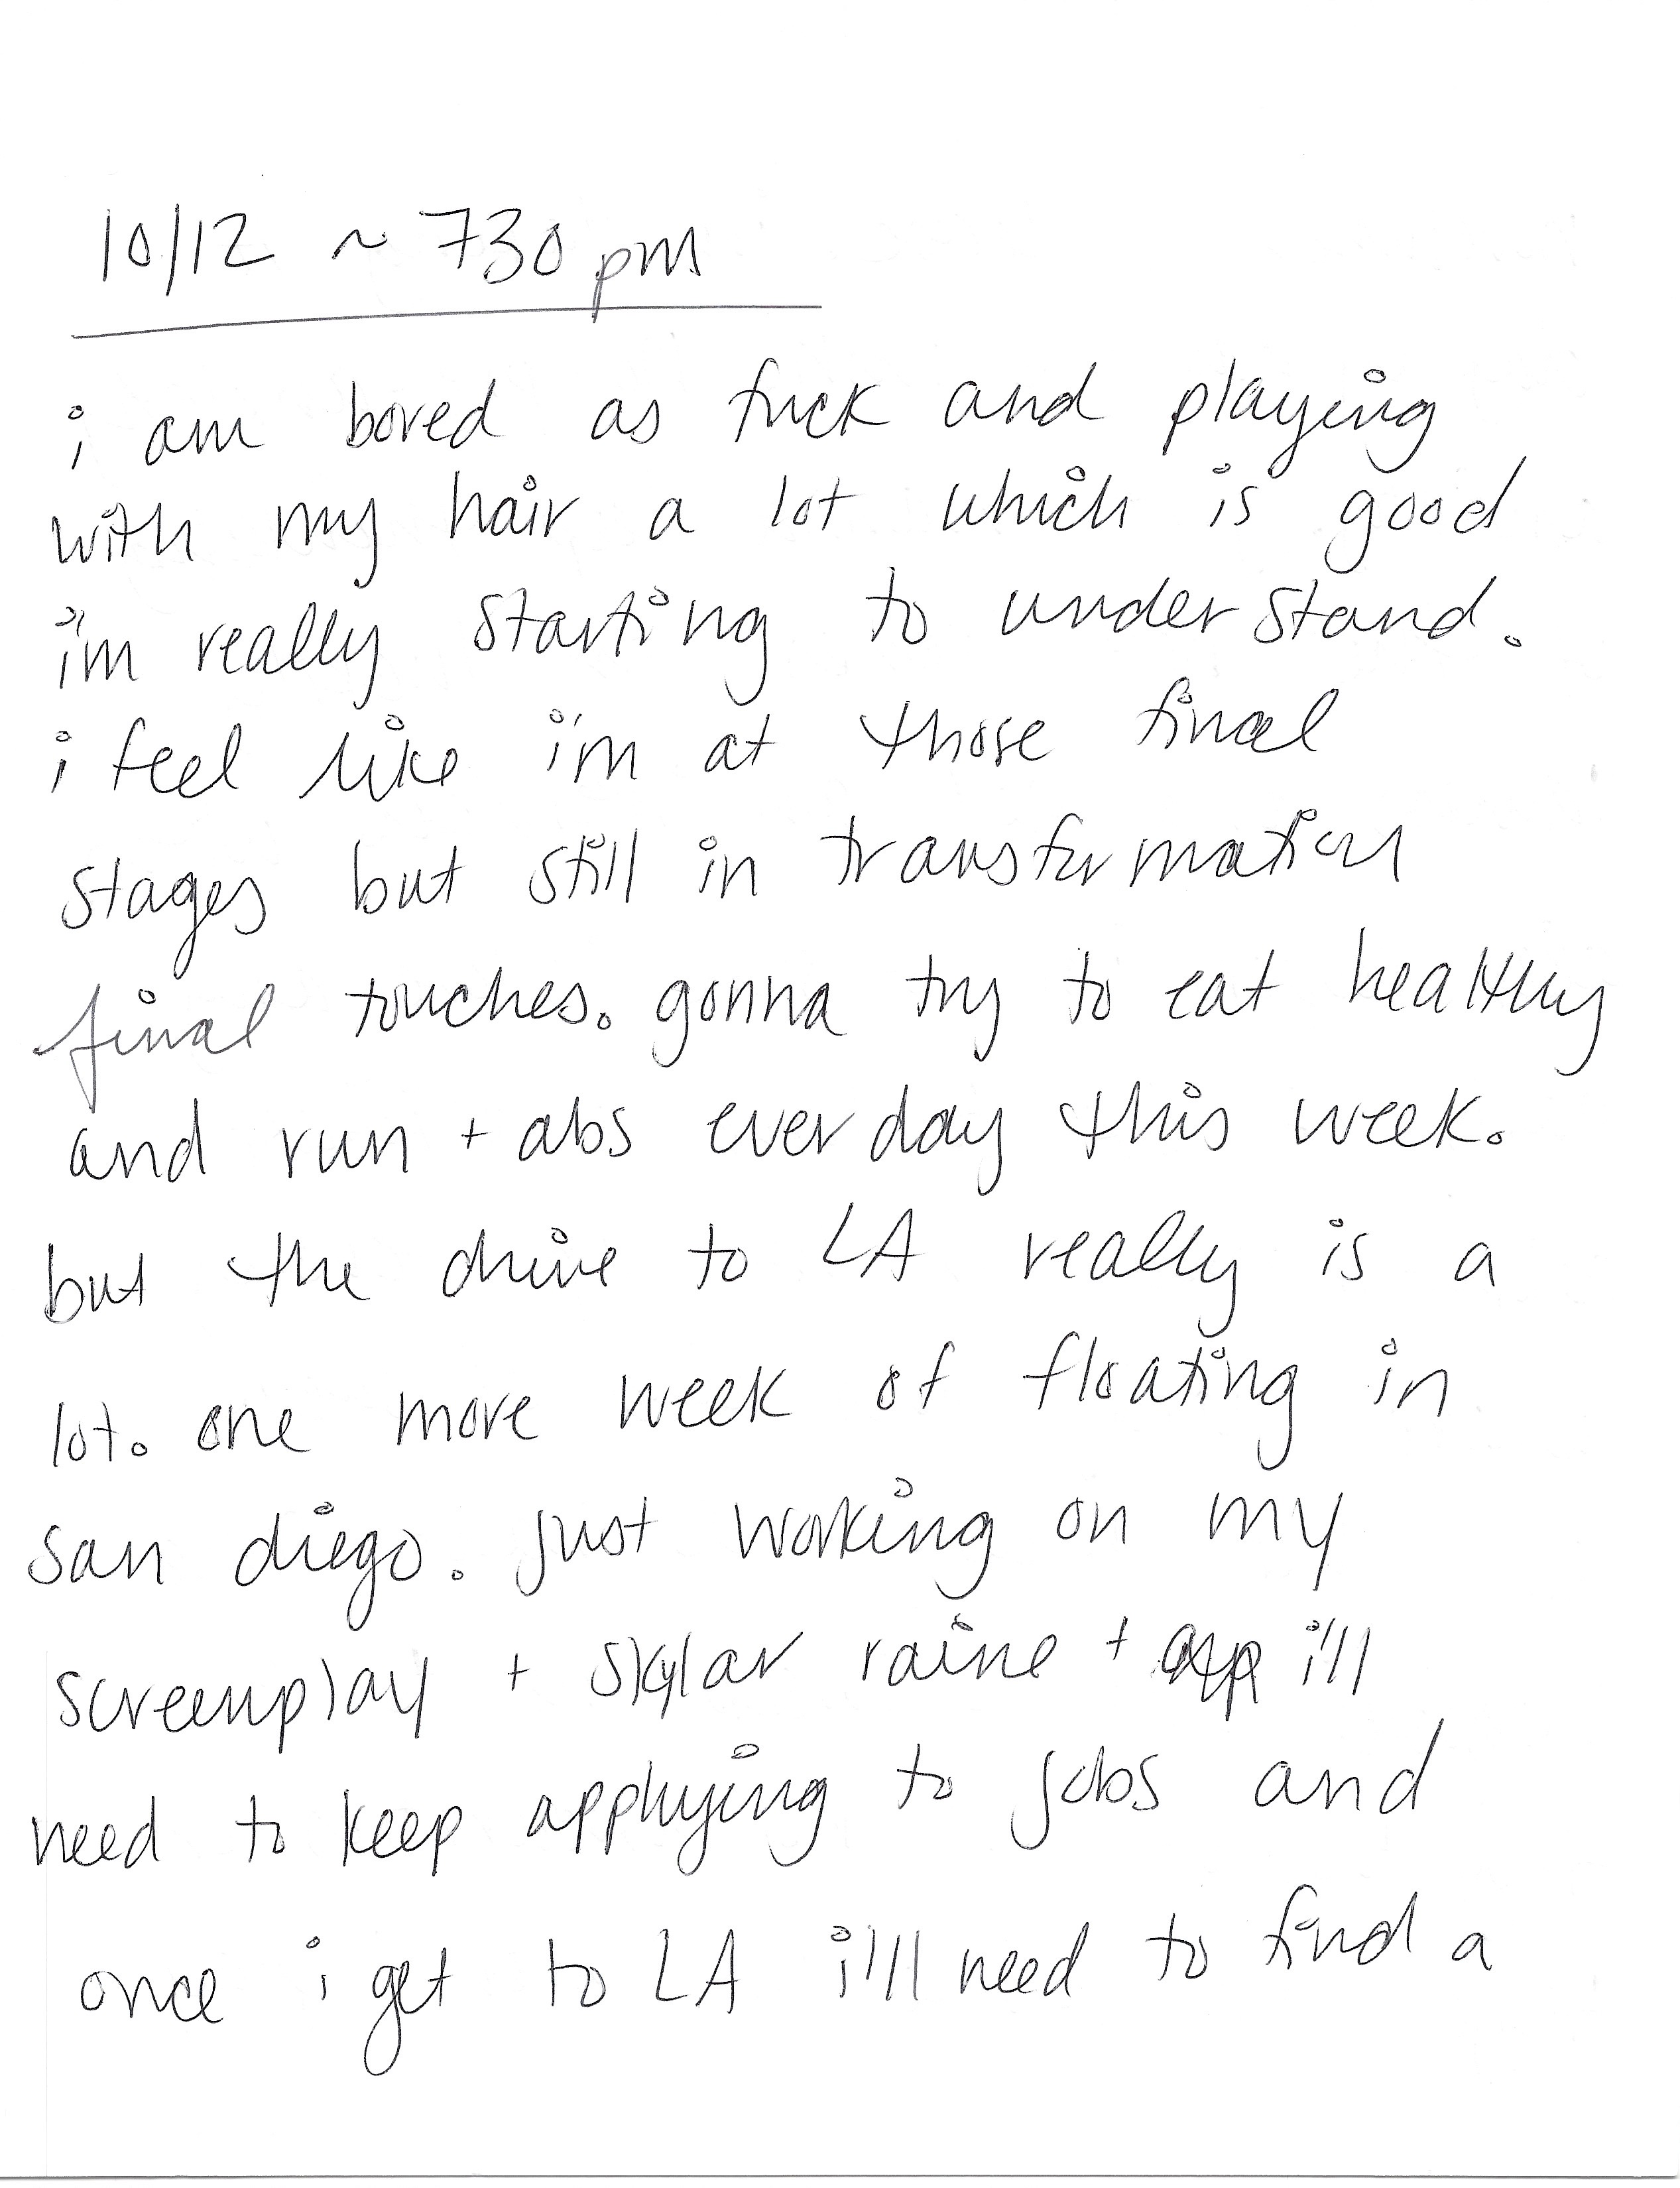 10/12 ~ 730 pm
i am bored as fuck and playing
with my hair a lot which is good
i'm really starting to understand.
i feel like i'm at those final
stages but still in transformation
final touches. gonna try to eat healthy
and run + abs everday this week.
but the drive to LA really is a
lot. one more week of floating in
san diego. just working on my
screenplay + skylar raine + app i'll
need to keep applying to jobs and
once i get to LA i'll need to find a